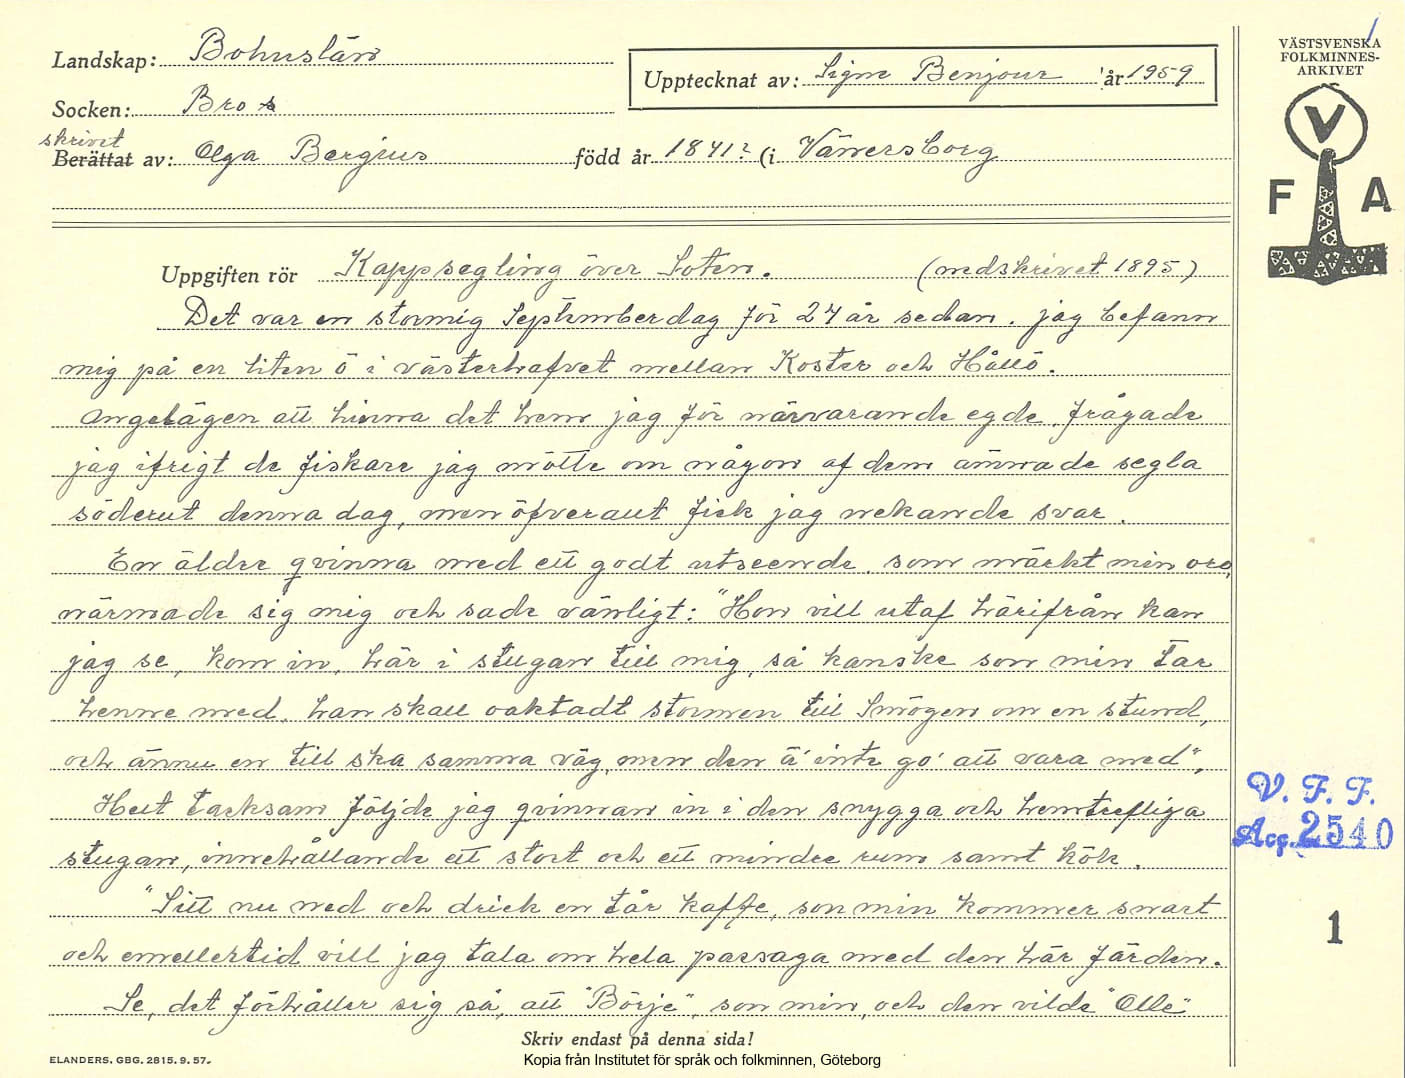 Landskap: Bohuslän
Upptecknat av: Signe Benjour år 1959
Socken: Bro s
skrivet
Berättat av: Olga Bergius född år 1841? (i Vänersborg
Uppgiften rör Kappsegling över Soten. (nedskrivet 1895)
Det var en stormig Septemberdag för 27 år sedan. jag befann
mig på en liten ö i västerhafvet mellan Koster och Hållö.
Angelägen att hinna det hem jag för närvarande egde, frågade
jag ifrigt de fiskare jag mötte om någon af dem ämnade segla
söderut denna dag, men öfverallt fick jag nekande svar.
En äldre qvinna med ett godt utseende, som märkt min oro,
närmade sig mig och sade vänligt: "Hon vill utaf härifrån kan
jag se, kom in, här i stugan till mig, så kanske son min tar
henne med, han skall oaktadt stormen till Smögen om en stund,
och ännu en till ska samma väg, men den ä' inte go' att vara med".
Helt tacksam följde jag qvinnan in i den snygga och hemtrefliga
stugan, innehållande ett stort och ett mindre rum samt kök.
"Sitt nu ned och drick en tår kaffe, son min kommer snart
och emellertid vill jag tala om hela passaga med den här färden.
Se, det förhåller sig så, att "Börje", son min, och den vilde "Olle"
Skriv endast på denna sida!
ELANDERS. GBG. 2815. 9. 57.
Kopia från Institutet för språk och folkminnen, Göteborg
VÄSTSVENSKA
FOLKMINNES-
ARKIVET
V
F A
V. F. F.
Acc. 2540
1